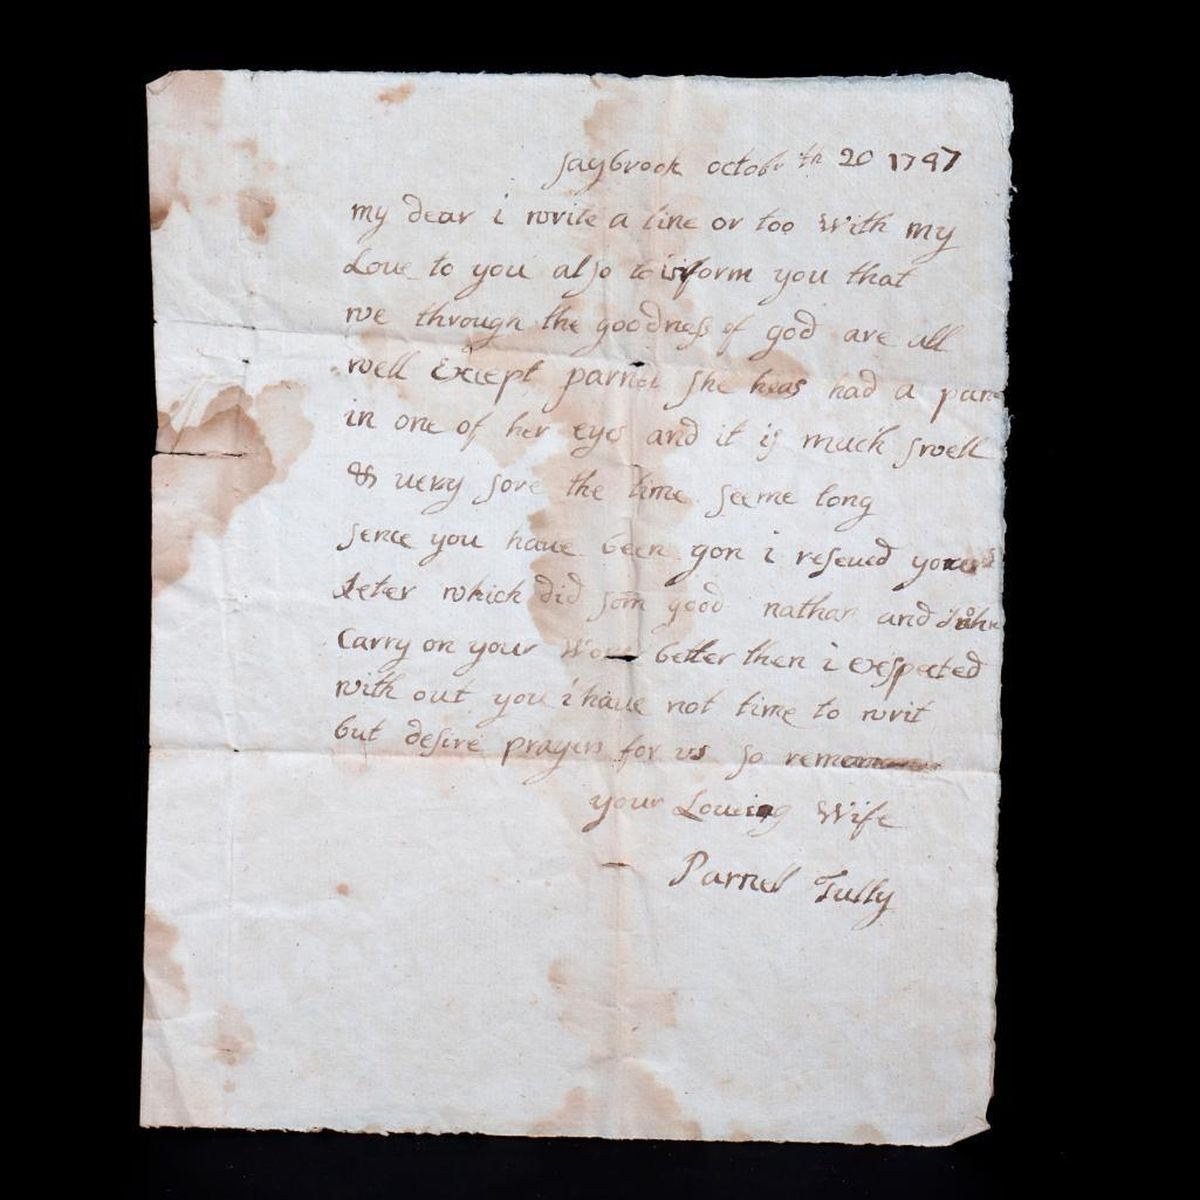 saybrook octobr th 20 1747
my dear i write a line or too With my
Loue to you also to inform you that
we through the goodness of god are all
well Except parnel she heas had a pane
in one of her eyes and it is much swell
& uery sore the time seeme long
sence you haue been gon i reseued
leter which did som good nathan and John
Carry on your Work better then i exspected
with out you i haue not time to writ
but desire prayers for us so
your Loueing Wife
Parnell Tully